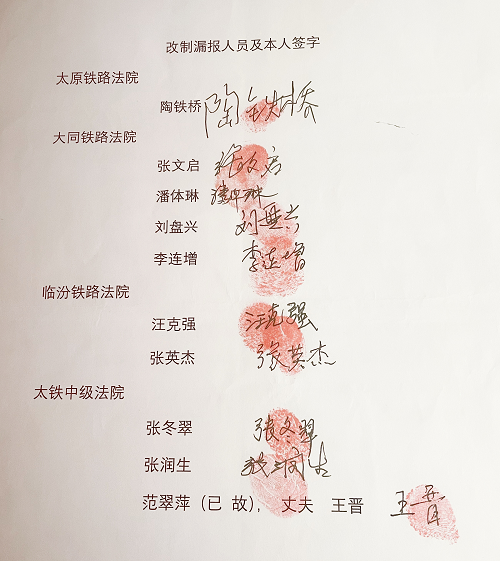 改制漏报人员及本人签字
太原铁路法院
陶铁桥 陶铁桥
大同铁路法院
张文启 张文启
潘体琳 潘体琳
刘盘兴 刘盘兴
李连增 李连增
临汾铁路法院
汪克强 汪克强
张英杰 张英杰
太铁中级法院
张冬翠 张冬翠
张润生 张润生
范翠萍（已 故）， 丈夫 王晋 王晋